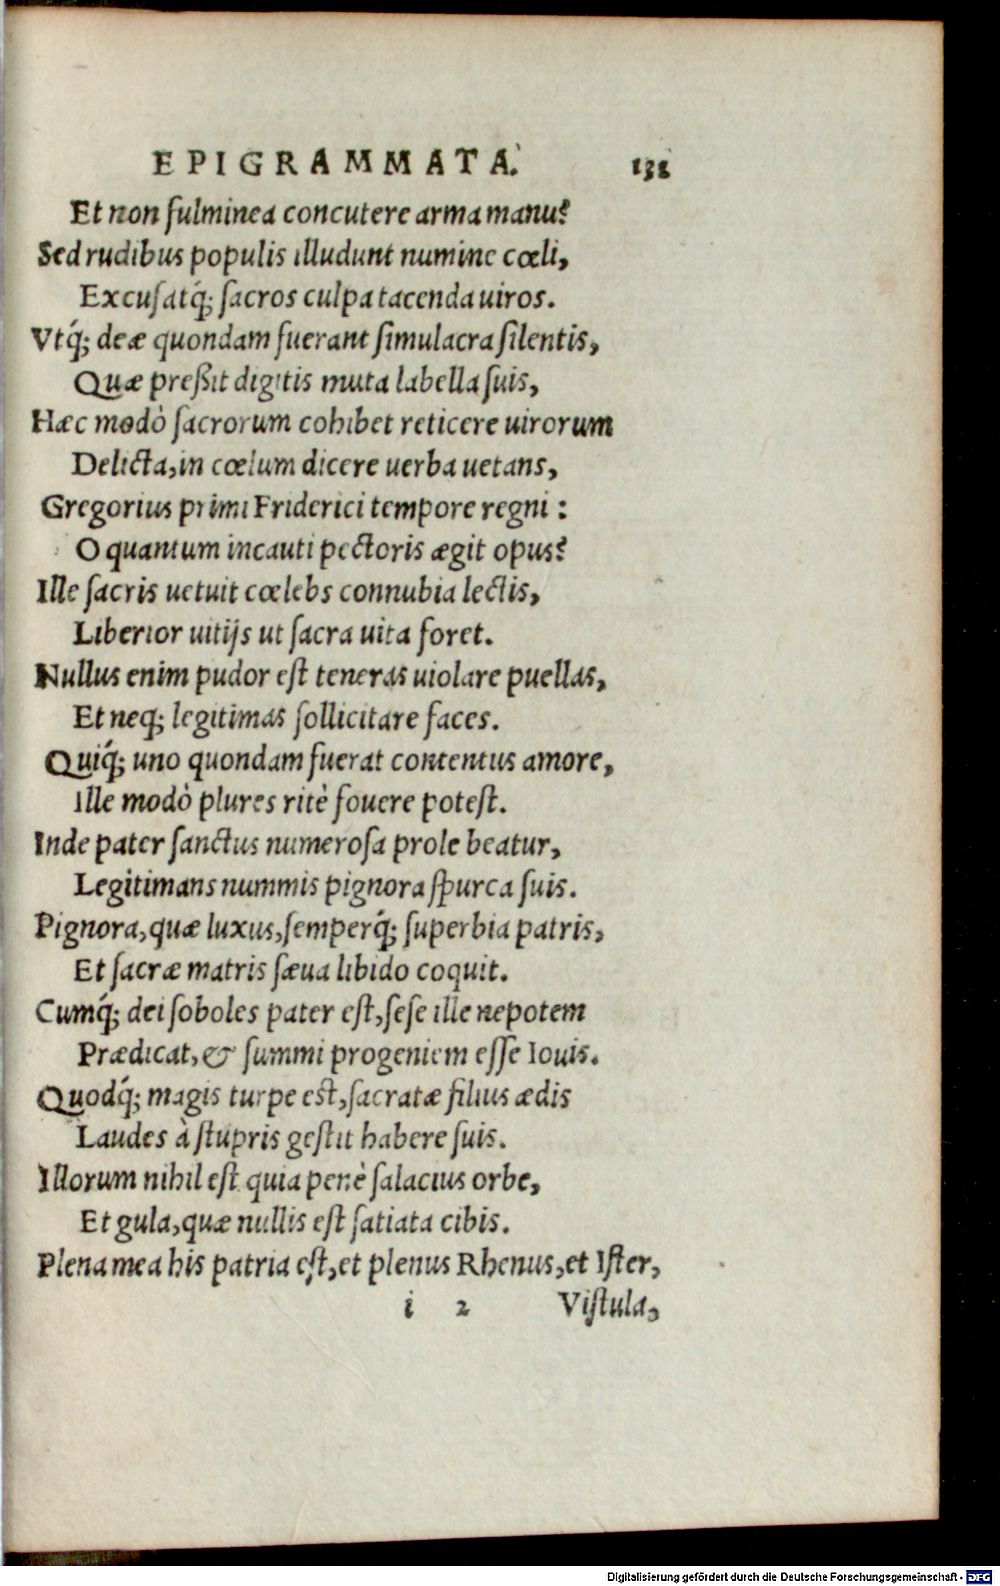 EPIGRAMMATA. 138
Et non fulminea concutere arma manu?
Sed rudibus populis illudunt numine cœli,
Excusatq́; sacros culpa tacenda uiros.
Vtq́; deæ quondam fuerant simulacra silentis,
Quæ preßit digitis muta labella suis,
Hæc modò sacrorum cohibet reticere uirorum
Delicta, in cœlum dicere uerba uetans,
Gregorius primi Friderici tempore regni:
O quantum incauti pectoris ægit opus?
Ille sacris uetuit cœlebs connubia lectis,
Liberior uitijs ut sacra uita foret.
Nullus enim pudor est teneras uiolare puellas,
Et neq; legitimas sollicitare faces.
Quiq́; uno quondam fuerat contentus amore,
Ille modò plures ritè fouere potest.
Inde pater sanctus numerosa prole beatur,
Legitimans nummis pignora spurca suis.
Pignora, quæ luxus, semperq́; superbia patris,
Et sacræ matris sæua libido coquit.
Cumq́; dei soboles pater est, sese ille nepotem
Prædicat, & summi progeniem esse Iouis.
Quodq́; magis turpe est, sacratæ filius ædis
Laudes à stupris gestit habere suis.
Illorum nihil est quia penè salacius orbe,
Et gula, quæ nullis est satiata cibis.
Plena mea his patria est, et plenus Rhenus, et Ister,
i 2 Vistula,
Digitalisierung gefördert durch die Deutsche Forschungsgemeinschaft - DFG